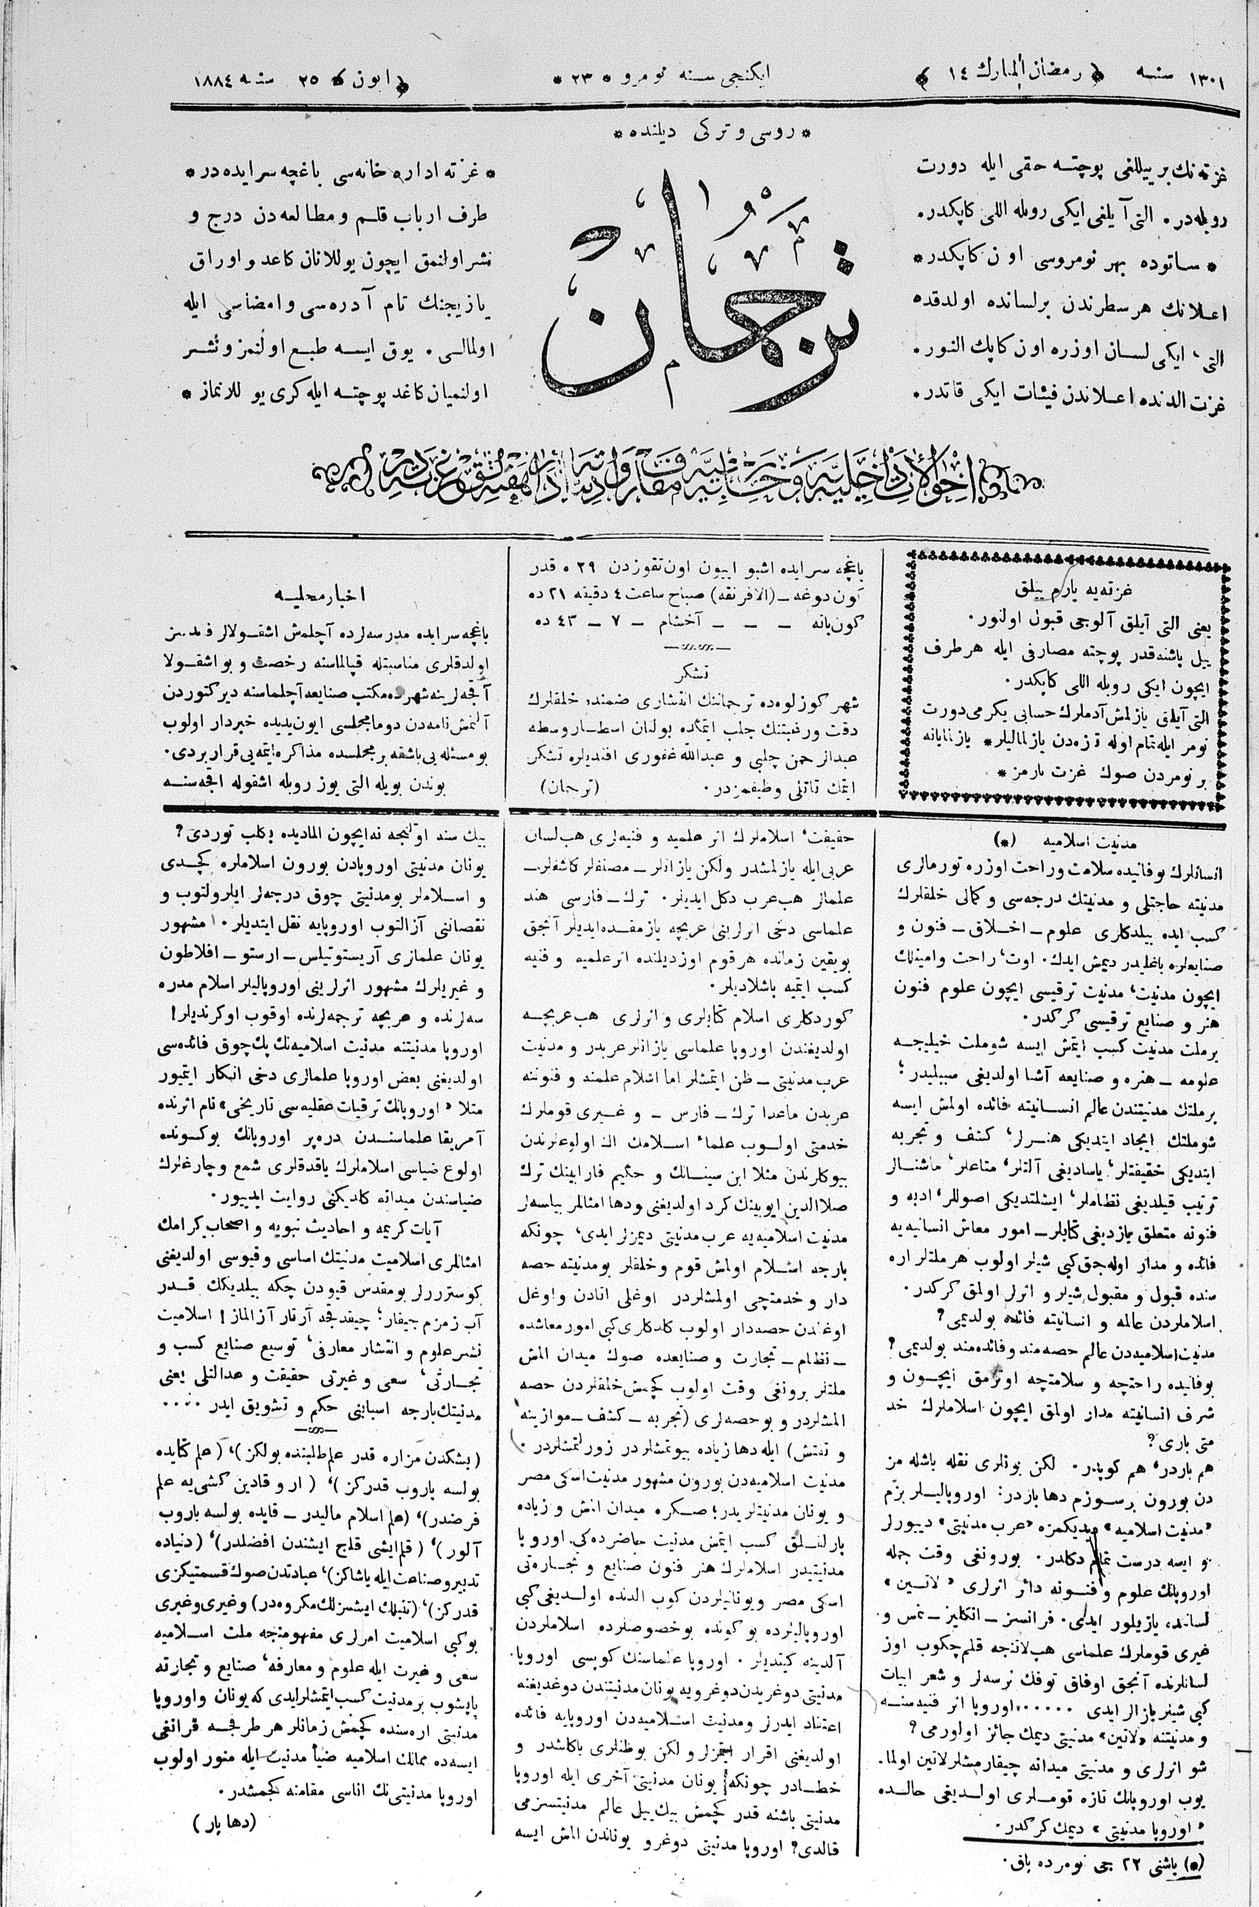 ١٣٠١ سنه ﴿ رمضان المبارك ١٤ ﴾
ايكنجى سنه نومرو * ٢٣ *
﴿ ايون ﴾ ٢٥ سنه ١٨٨٤
* روسى و تركى ديلنده *
غزته‌نك بر ييللغى پوچته حقى ايله دورت
روبله‌در. التى آيلغى ايكى روبله اللى كاپكدر.
* ساتوده بهر نومروسى اون كاپكدر *
اعلانك هر سطرندن بر لسانده اولدقده
التى، ايكى لسان اوزره اون كاپك النور.
غزت الدنده اعلاندن فيئات ايكى قاتدر.
ترجمان
* غزته اداره خانه‌سى باغچه سرايده‌در *
طرف ارباب قلم و مطالعه‌دن درج و
نشر اولنمق ايچون يوللانان كاغد و اوراق
يازيجنك تام آدره‌سى و امضاسى ايله
اولمالى. يوق ايسه طبع اولنمز و نشر
اولنميان كاغد پوچته ايله كرى يوللانماز *
غزته‌يه يارم ييللق
يعنى التى آيلق آلوجى قبول اولنور.
ييل باشنه‌قدر پوچته مصارفى ايله هر طرف
ايچون ايكى روبله اللى كاپكدر.
التى آيلق يازلمش آدملرك حسابى يكرمى‌دورت
نومر ايله تمام اوله تزه‌دن يازلماليلر * يازلمايانه
بر نومردن صوك غزت بارمز *
باغچه سرايده اشبو ايون اون تقوزدن ٢٩ ه قدر
كون دوغه – (الافرنقه) صباح ساعت ٤ دقيقه ٢١ ده
كون باته – – – آخشام – ٧ – ٤٣ ده
تشكر
شهر كوزلوه‌ده ترجمانك انتشارى ضمننده خلقلرك
دقت و رغبتنك جلب ايتمكده بولنان اسطار وسطه
عبدالرحمن چلبى و عبدالله غفورى افنديلره تشكر
ايتمك قاتلى وظيفمزدر. (ترجمان)
اخبار محليه
باغچه سرايده مدرسه‌لرده آچلمش اشقولالر فيدسز
اولدقلرى مناسبتله قپالماسنه رخصت و بو اشقولا
آقچه‌لرينه شهرده مكتب صنايعه آچلماسنه ديركتوردن
آلنمش نامه‌دن دوما مجلسى ايون يديده خبردار اولوب
بو مسئله‌يى باشقه بر مجلسده مذاكره ايتمه‌يى قرار بردى.
بوندن بويله التى يوز روبله اشقوله اقچه‌سنه
مدنيت اسلاميه (*)
انسانلرك بو فانيده سلامت و راحت اوزره تورمالرى
مدنيته حاجتلى و مدنيتك درجه‌سى و كمالى خلقلرك
كسب ايده بيلدكلرى علوم – اخلاق – فنون و
صنايعلره باغليدر ديمش ايدك. اوت، راحت و امينلك
ايچون مدنيت، مدنيت ترقيسى ايچون علوم فنون
هنر و صنايع ترقيسى كركدر.
بر ملت مدنيت كسب ايتمش ايسه شو ملت خيليجه
علومه – هنره و صنايعه آشنا اولديغى سببليدر؛
بر ملتك مدنيتندن عالم انسانيته فائده اولمش ايسه
شو ملتك ايجاد ايتديكى هنرلر، كشف و تجربه
ايتديكى حقيقتلر، ياساديغى آلتلر، متاعلر، ماشنالر
ترتيب قيلديغى نظاملر، ايشلتديكى اصوللر، ادبه و
فنونه متعلق يازديغى كتابلر – امور معاش انسانيه‌يه
فائده و مدار اوله‌جق كبى شيلر اولوب هر ملتلر اره
سنده قبول و مقبول شيلر و اثرلر اولمق كركدر.
اسلاملردن عالمه و انسانيته فائده بولديمى؟
مدنيت اسلاميه‌دن عالم حصه‌مند و فائده‌مند بولديمى؟
بو فانيده راحتچه و سلامتچه اوترمق ايچون و
شرف انسانيته مدار اولمق ايچون اسلاملرك خد
متى بارى؟
هم باردر، هم كوپدر. لكن بونلرى نقله باشله مز
دن بورون بر سوزم دها باردر: اوروپاليلر بزم
«مدنيت اسلاميه» ديديكمزه «عرب مدنيتى» ديیورلر
بو ايسه درست تمام دكلدر. بورونغى وقت جمله
اوروپانك علوم و فنونه دائر اثرلرى «لاتين»
لسانده يازيلور ايدى. فرانسز – انكليز – نمس و
غيرى قوملرك علماسى هب لاتنجه قلم چكوب اوز
لسانلرنده آنجق اوفاق توفك نرسه‌لر و شعر ابيات
كبى شيلر يازالر ايدى ...... اوروپا اثر فنيه‌سنه
و مدنيتنه «لاتين» مدنيتى ديمك جائز اولورمى؟
شو اثرلرى و مدنيتى ميدانه چيقارمشلر لاتين اولما
يوب اوروپانك تازه قوملرى اولديغى حالده
«اوروپا مدنيتى» ديمك كركدر.
(*) باشى ٢٢ جى نومرده باق.
حقيقت، اسلاملرك اثر علميه و فنيه‌لرى هب لسان
عربى ايله يازلمشدر ولكن يازانلر – مصنفلر كاشفلر –
علمالر هب عرب دكل ايديلر. ترك – فارسى هند
علماسى دخى اثرلرينى عربچه يازمقده ايديلر آنجق
بو يقين زمانده هر قوم اوز ديلنده اثر علميه و فنيه
كسب ايتميه باشلاديلر.
كوردكلرى اسلام كتابلرى و اثرلرى هب عربچه
اولديغندن اوروپا علماسى يازانلر عربدر و مدنيت
عرب مدنيتى – ظن ايتمشلر اما اسلام علمنه و فنوننه
عربدن ماعدا ترك – فارس – و غيرى قوملرك
خدمتى اولوب علماء اسلامك الك اولوغلرندن
بيوكلرندن مثلا ابن سينانك و حكيم فارابينك ترك
صلاالدين ايوبينك كرد اولديغى و دها امثاللر بيلسه‌لر
مدنيت اسلاميه‌يه عرب مدنيتى ديمزلر ايدى، چونكه
بارچه اسلام اولمش قوم و خلقلر بو مدنيته حصه
دار و خدمتچى اولمشلردر. اوغلى انادن و اوغل
اوغلندن حصه‌دار اولوب كلدكلرى كبى امور معاشده
– نظام – تجارت و صنايعده صوك ميدان المش
ملتلر بورونغى وقت اولوب كچمش خلقلردن حصه
المشلردر و بو حصه‌لرى (تجربه – كشف – موازينه
و تفتش) ايله دها زياده بيوتمشلردر زورلتمشلردر.
مدنيت اسلاميه‌دن بورون مشهور مدنيت اسكى مصر
و يونان مدنيتلريدر؛ صكره ميدان المش و زياده
پارلنلق كسب ايتمش مدنيت حاضره‌كى اوروپا
مدنيتيدر اسلاملرك هنر فنون صنايع و تجاره‌تى
اسكى مصر و يونانيلردن كوب الدنده اولديغى كبى
اوروپاليلرده بو كونده بو خصوصلرده اسلاملردن
آلدينه كيتديلر. اوروپا علماسنك كوبسى اوروپا
مدنيتى دوغريدن دوغرويه يونان مدنيتندن دوغديغنه
اعتقاد ايدرلر و مدنيت اسلاميه‌دن اوروپايه فائده
اولديغنى اقرار ايتمزلر و لكن بو ظنلرى ياكلشدر و
خطادر چونكه يونان مدنيتى آخرى ايله اوروپا
مدنيتى باشنه قدر كچمش بيك ييل عالم مدنيتسزمى
قالدى؟ اوروپا مدنيتى دوغرو يوناندن المش ايسه
بيك سنه اولنجه نه ايچون المايديه بكلب توردى؟
يونان مدنيتى اوروپادن بورون اسلاملره كچدى
و اسلاملر بو مدنيتى چوق درجه‌لر ايلرولتوب و
نقصاننى آزالتوب اوروپايه نقل ايتديلر. مشهور
يونان علمالرى آريستوتيلس – ارستو – افلاطون
و غيريلرك مشهور اثرلرينى اوروپاليلر اسلام مدره
سه‌لرنده و عربچه ترجمه‌لرنده اوقوب اوكرنديلر!
اوروپا مدنيتنه مدنيت اسلاميه‌نك پك چوق فائده‌سى
اولديغنى بعض اوروپا علمالرى دخى انكار ايتميور
مثلا «اوروپانك ترقيات عقليه‌سى تاريخى» نام اثرنده
آمريقا علماسندن دره‌پر اوروپانك بو كونده
اولوغ ضياسى اسلاملرك ياقدقلرى شمع و چارغلرك
ضياسندن ميدانه كلديكنى روايت ايدييور.
آيات كريمه و احاديث نبويه و اصحاب كرامك
امثاللرى اسلاميت مدنيتك اساسى و قپوسى اولديغنى
كوسترولر بو مقدس قپودن چكه بيلديك قدر
آب زمزم چيقار؛ چيقدقچه آرتار آزالماز! اسلاميت
نشر علوم و انتشار معارفى، توسيع صنايع كسب و
تجارتى، سعى و غيرتى حقيقت و عدالتلى يعنى
مدنيتك بارچه اسبابنى حكم و تشويق ايدر ....
(بشكدن مزاره قدر علم طلبنده بولكز)، (علم كتايده
بولسه باروب قدركز)، (ار و قادين كشى‌يه علم
فرضدر)، (علم اسلام ماليدر – قايده بولسه باروب
آلور)، (قلم ايشى قلج ايشندن افضلدر)، (دنياده
تدبير و صناعت ايله ياشاكز)، عبادتدن صوك قسمتيكزى
قدركز)، (تنبلك ايشسزلك مكروه‌در) و غيرى و غيرى
بو كبى اسلاميت امرلرى مفهومنجه ملت اسلاميه
سعى و غيرت ايله علوم و معارفه، صنايع و تجارته
ياپشوب بر مدنيت كسب ايتمشلر ايدى كه يونان و اوروپا
مدنيتى اره‌سنده كچمش زمانلر هر طرفجه قرانغى
ايسه‌ده ممالك اسلاميه ضياء مدنيت ايله منور اولوب
اوروپا مدنيتى‌نك اناسى مقامنه كچمشدر.
(دها بار)